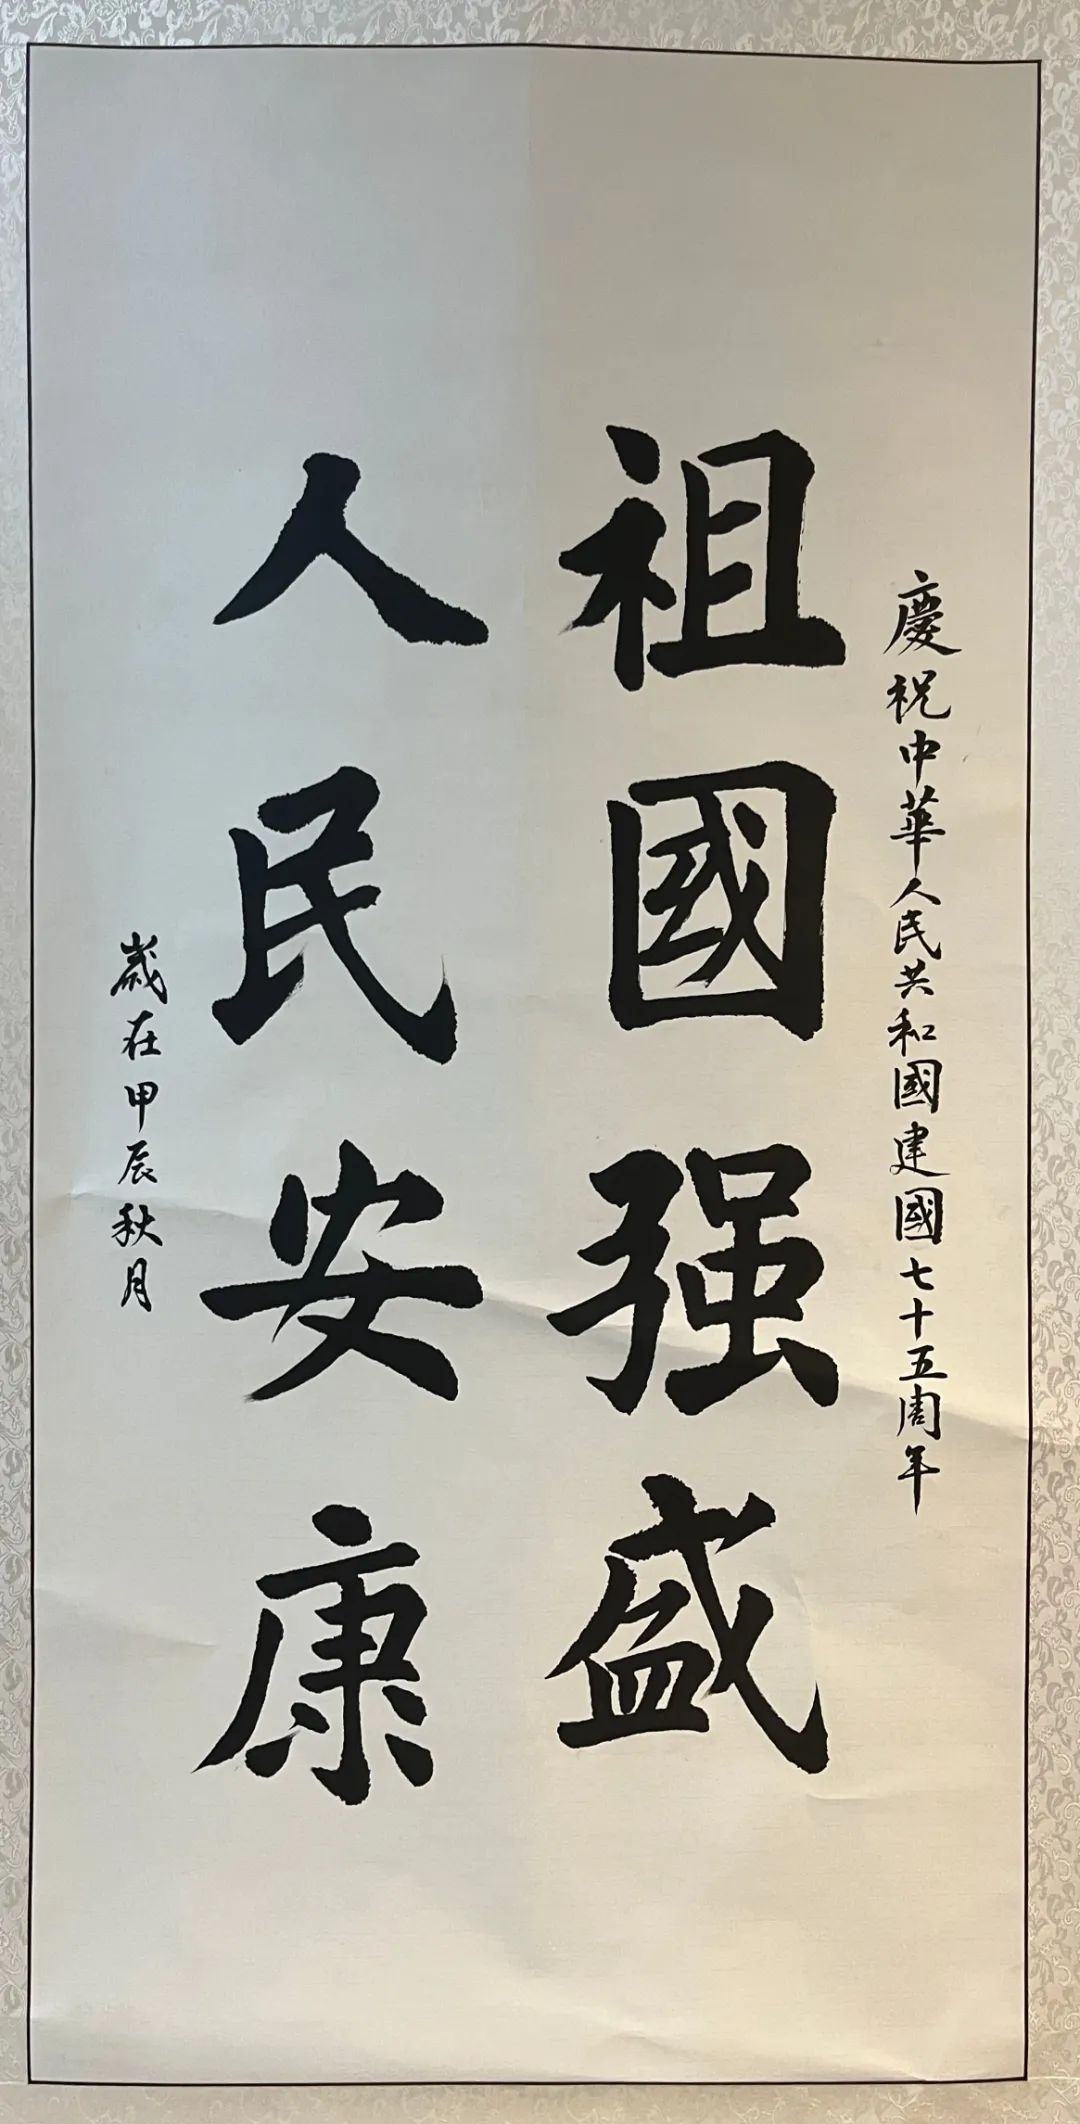 慶祝中華人民共和國建國七十五周年
祖國强盛
人民安康
歲在甲辰秋月